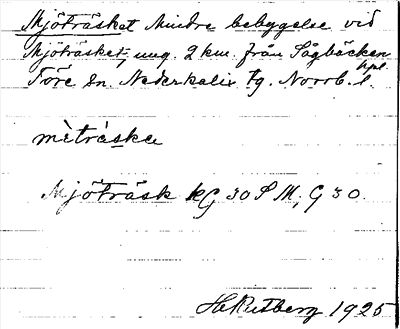 Mjöträsket Mindre bebyggelse vid
Mjöträsket, ung. 2 km. från Sågbäcken hpl.
Töre sn. Nederkalix tg. Norrb. l.
mètràska
Mjöträsk kG 30 S M; G 30.
H. Rutberg 1925